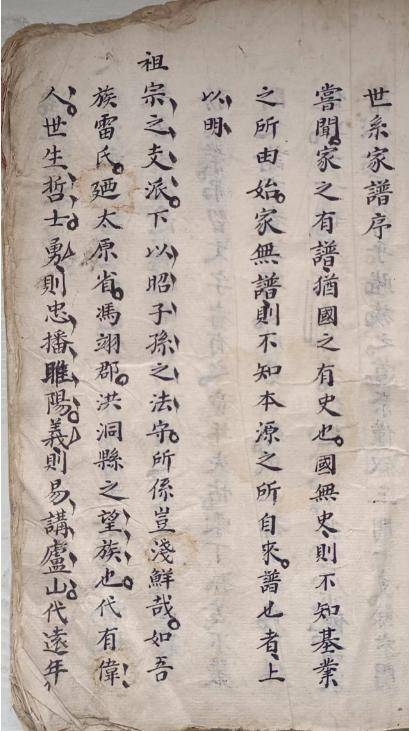 世系家譜序
嘗聞家之有譜猶國之有史也國無史則不知基業
之所由始家無譜則不知本源之所自來譜也者上
以明
祖宗之支派下以昭子孫之法守所係豈淺鮮哉如吾
族雷氏廼太原省馮翊郡洪洞縣之望族也代有偉
人世生哲士勇則忠播睢陽義則易講廬山代遠年